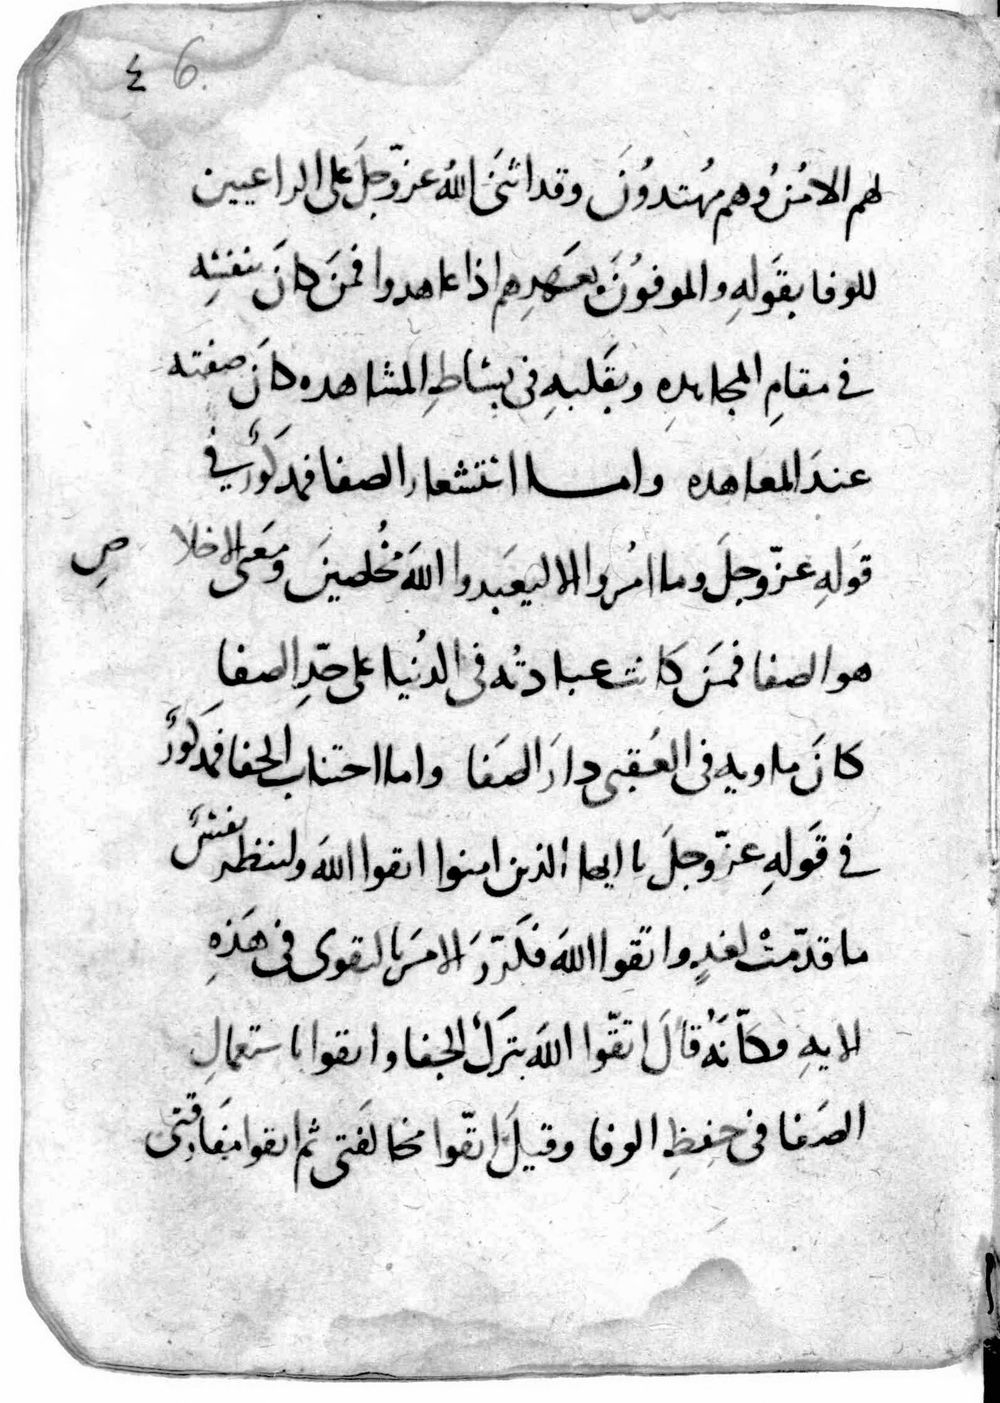 ٤ 6.
لهم الامُنُ وُهم مهُتدوُنَ وقد اثنَى اللهُ عزّوجلَ على الراعيين
للوفا بقَولهِ والموفوُنَ بعَهدِهم اذا عاهدوا فمنَ كانَ بنفسِه
في مقامِ المجاهدهِ وبقَلبهِ فى بساطِ المشاهده كانَ صفته
عندَ المعاهده وامـا استشعار الصفا فمذكوَرٌ في
قوَلهِ عزّوجلَ وما امُروا الا ليعَبدوا اللهَ مخُلصينَ ومعَنى الاخلاصِ
هو الصفا فمنَ كانت عبادتُه فى الدنُيا على حدّ الصفا
كانَ ماويه فى العقُبى دارَ الصَفا واما اجتناب الجفا فمذكوَرٌ
في قوَلهِ عزّوجلَ يا ايها الذين امنوا اتقوا اللهَ ولتنظر نفسٌ
ما قدّمتْ لغدٍ واتقَوا اللهَ فكَرّرَ الامرَ بالتقوى فى هذهِ
الايهِ وكاَنّهُ قالَ اتقّوا اللهَ بترَكِ الجفا واتقوا باستعمالِ
الصَفا فى حفِظِ الوفا وقيلَ اتقّوا مخالفَتى ثم اتقوا مفاَرقتى